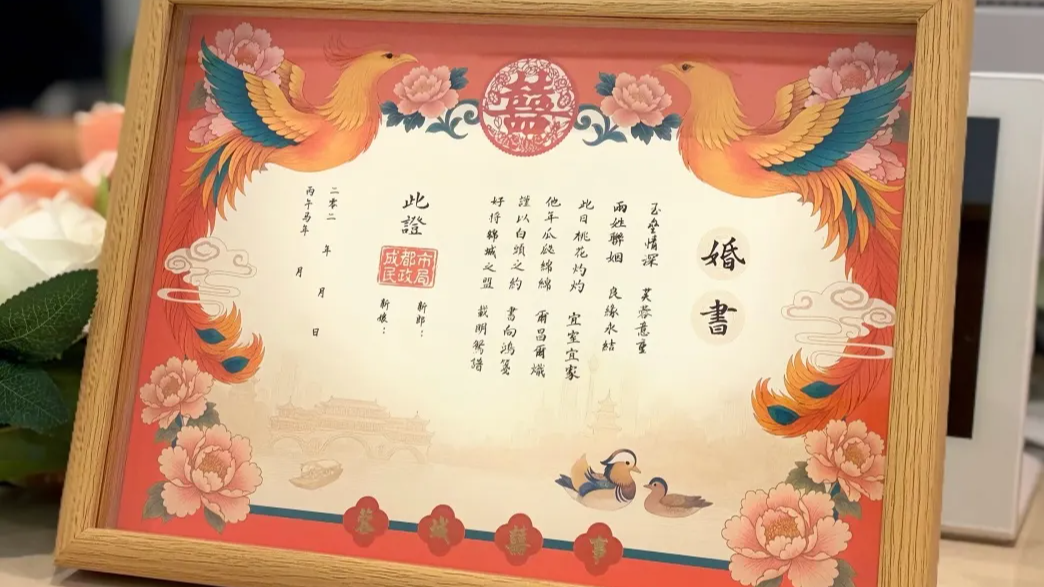 囍
婚書
玉垒情深 芙蓉意重
兩姓聯姻 良緣永結
此日桃花灼灼 宜室宜家
他年瓜瓞綿綿 爾昌爾熾
謹以白頭之約 書向鴻箋
好将錦城之盟 載明鴛譜
此證
成都市
民政局
新郎：
新娘：
二零二 年 月 日
丙午马年 月
蓉城囍事